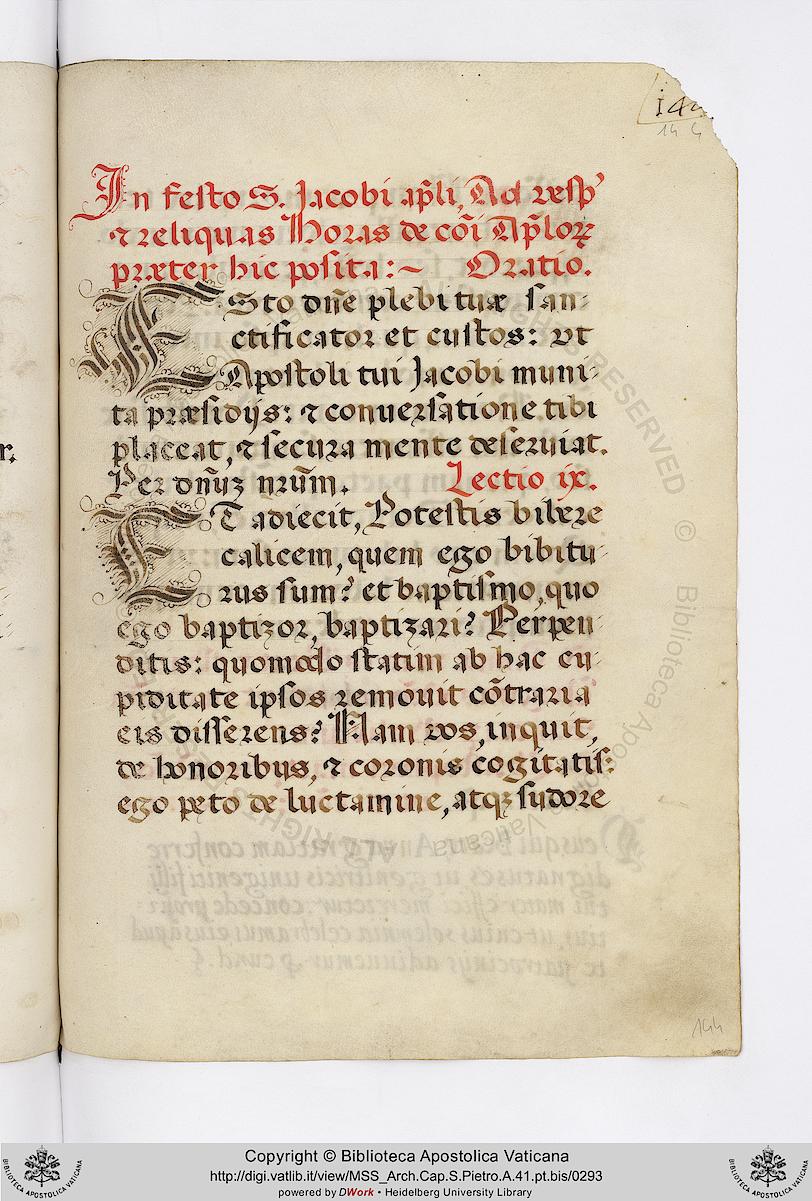 144
14 4
In festo S. Jacobi ap̃li, Ad vesp̃
⁊ reliquas Horas de cõi Ap̃loꝝ
præter hic posita:~ Oratio.
ESto dñe plebi tuæ san-
ctificator et custos: vt
Apostoli tui Jacobi muni-
ta præsidijs: ⁊ conuersatione tibi
placeat, ⁊ secura mente deseruiat.
Per dñuȝ nrũm. Lectio ix.
ET adiecit, Potestis bibere
calicem, quem ego bibitu-
rus sum? et baptismo, quo
ego baptizor, baptizari? Perpen-
ditis: quomodo statim ab hac cu-
piditate ipsos remouit cõtraria
eis disserens? Nam vos, inquit,
de honoribus, ⁊ coronis cogitatis:
ego peto de luctamine, atqȝ sudore
144
r.
ALL RIGHTS RESERVED © Biblioteca Apostolica Vaticana
BIBLIOTECA APOSTOLICA VATICANA
Copyright © Biblioteca Apostolica Vaticana
http://digi.vatlib.it/view/MSS_Arch.Cap.S.Pietro.A.41.pt.bis/0293
powered by DWork • Heidelberg University Library
BIBLIOTECA APOSTOLICA VATICANA